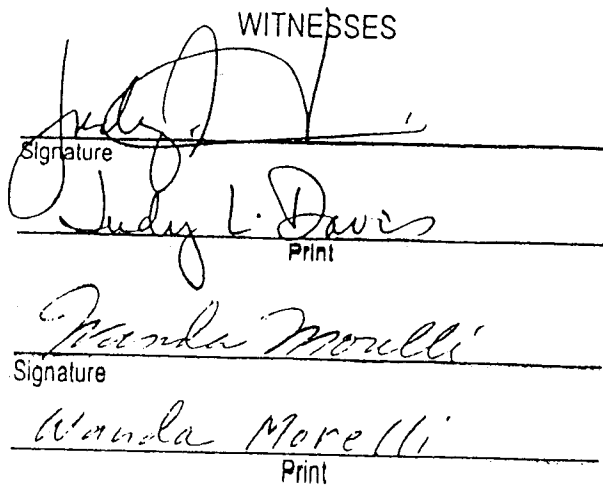 WITNESSES
Judy
Signature
Judy L. Davis
Print
Wanda Morelli
Signature
Wanda Morelli
Print